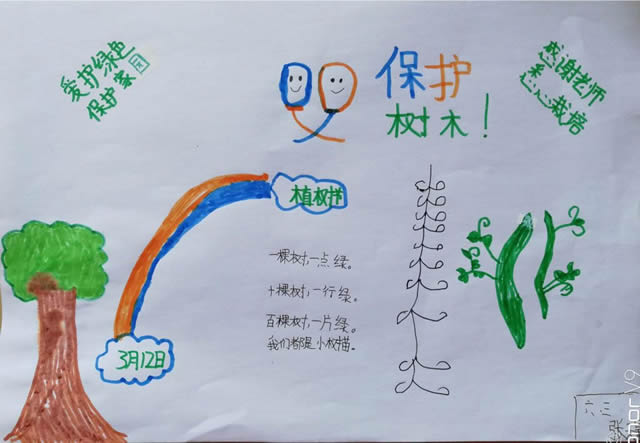 爱护绿色
保护家园
保护
树木！
感谢老师
悉心栽培
植树节
一棵树，一点绿。
十棵树，一行绿。
百棵树，一片绿。
我们都是小树描。
3月12日
张